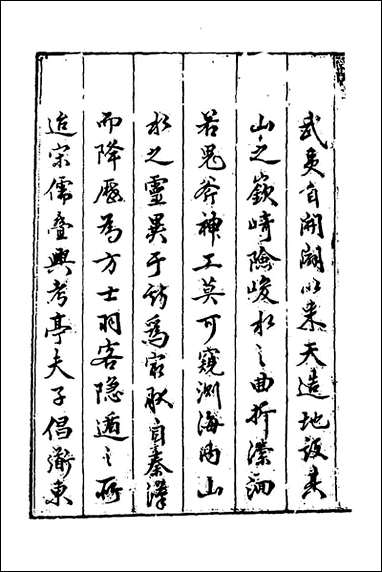 武夷自開闢以来天造地設其
山之嶔﨑險峻水之曲折瀠洄
若鬼斧神工莫可窺測海内山
水之靈異于斯爲最肰自秦漢
而降歷為方士羽客隐遁之所
迨宋儒疊興考亭夫子倡衜東